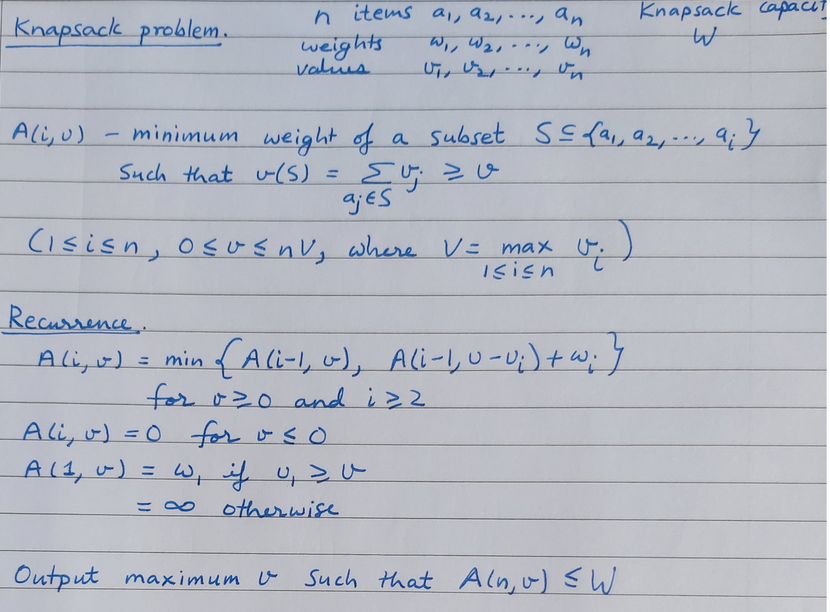 Knapsack problem.
n items a₁, a₂, ..., aₙ
weights w₁, w₂, ..., wₙ
values v₁, v₂, ..., vₙ
Knapsack
W
A(i,v) – minimum weight of a subset S ⊆ {a₁, a₂, ..., aᵢ}
Such that v(S) = Σ vⱼ ≥ v
aⱼ∈S
(1≤i≤n, 0≤v≤nV, where V= max vᵢ)
1≤i≤n
Recurrence.
A(i,v) = min {A(i-1, v), A(i-1, v-vᵢ)+wᵢ}
for v≥0 and i≥2
A(i,v) = 0 for v≤0
A(1,v) = w₁ if v₁ ≥ v
= ∞ otherwise
Output maximum v such that A(n,v) ≤ W